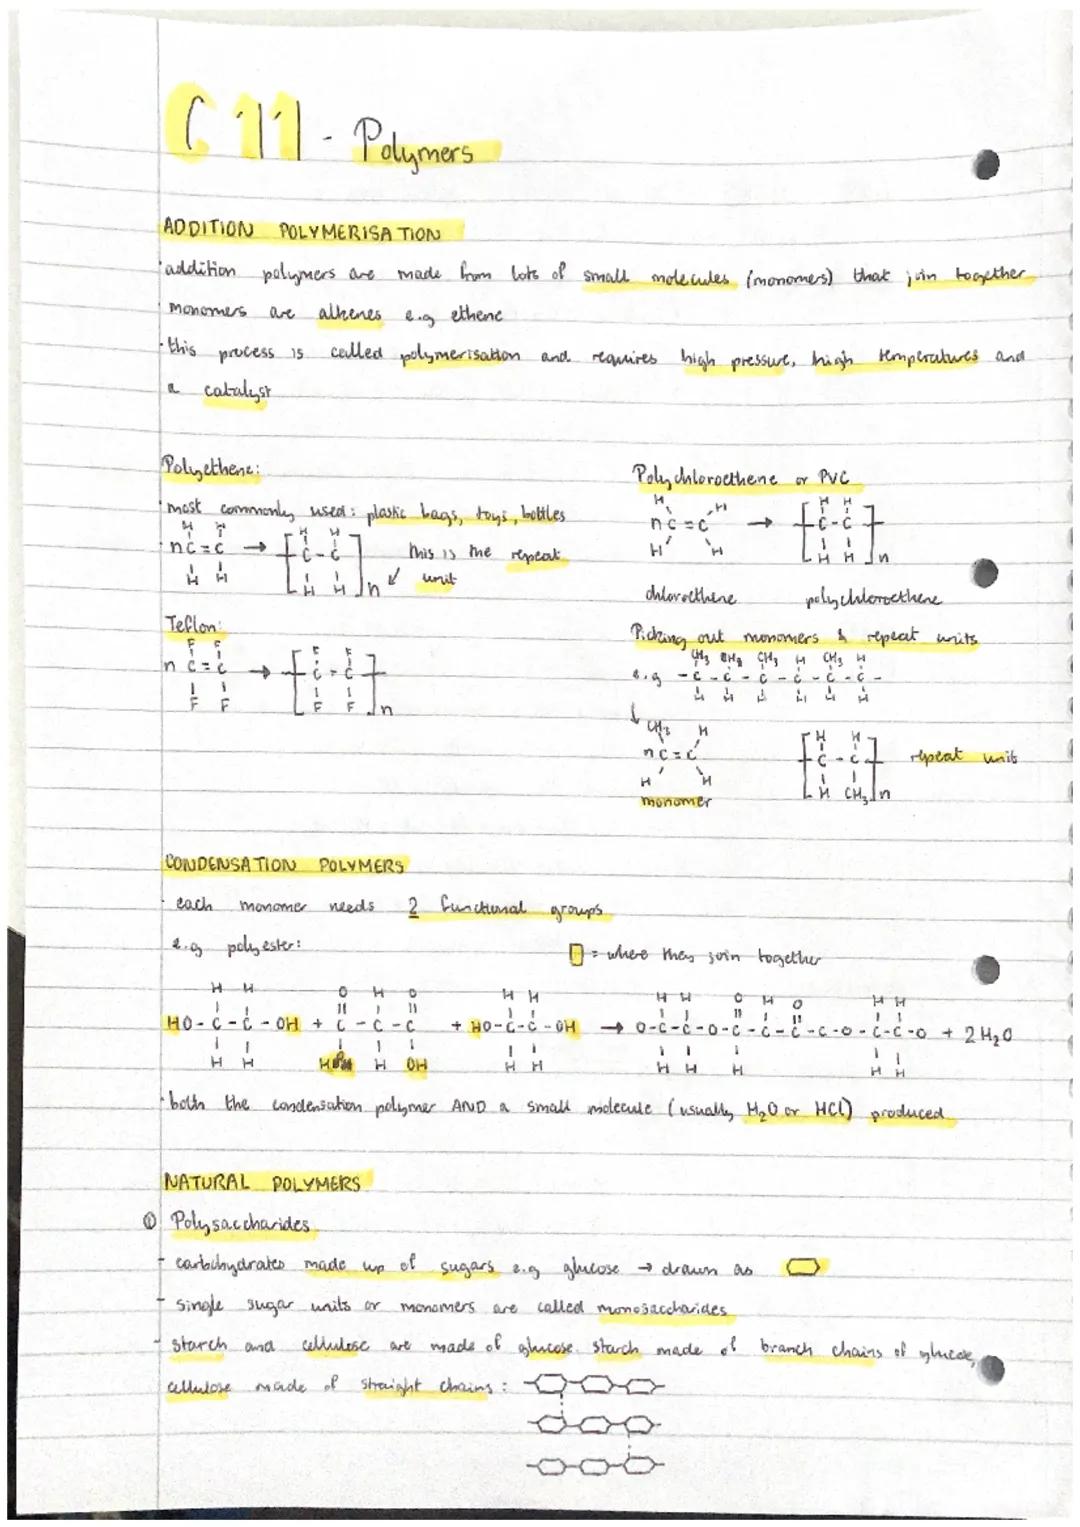 C11 - Polymers
ADDITION POLYMERISATION
· addition polymers are made from lots of small molecules (monomers) that join together
monomers are alkenes e.g ethene
· this process is called polymerisation and requires high pressure, high temperatures and
a catalyst
Polyethene:
· most commonly used: plastic bags, toys, bottles
H H H H
nC=C → [C-C]n this is the repeat
H H H H unit
Teflon:
F F F F
n C=C → [C-C]n
F F F F
Polychloroethene or PVC
H H H H
nC=C → [C-C]n
H H H H
chloroethene polychloroethene
Picking out monomers & repeat units
CH3 CH3 CH3 H CH3 H
e.g -C-C-C-C-C-C-
H H H H H H
↓
CH3 H H H
nC=C [C-C]n repeat unit
H H H CH3
monomer
CONDENSATION POLYMERS
· each monomer needs 2 functional groups
e.g polyester: = where they join together
H H O H O H H H H O H O H H
HO-C-C-OH + C-C-C + HO-C-C-OH → O-C-C-O-C-C-C-C-O-C-C-O + 2H2O
H H H OH H H H H H H H
· both the condensation polymer AND a small molecule (usually H2O or HCl) produced
NATURAL POLYMERS
① Polysaccharides
- carbohydrates made up of sugars e.g glucose → drawn as
- single sugar units or monomers are called monosaccharides
- starch and cellulose are made of glucose. starch made of branch chains of glucose,
cellulose made of straight chains: